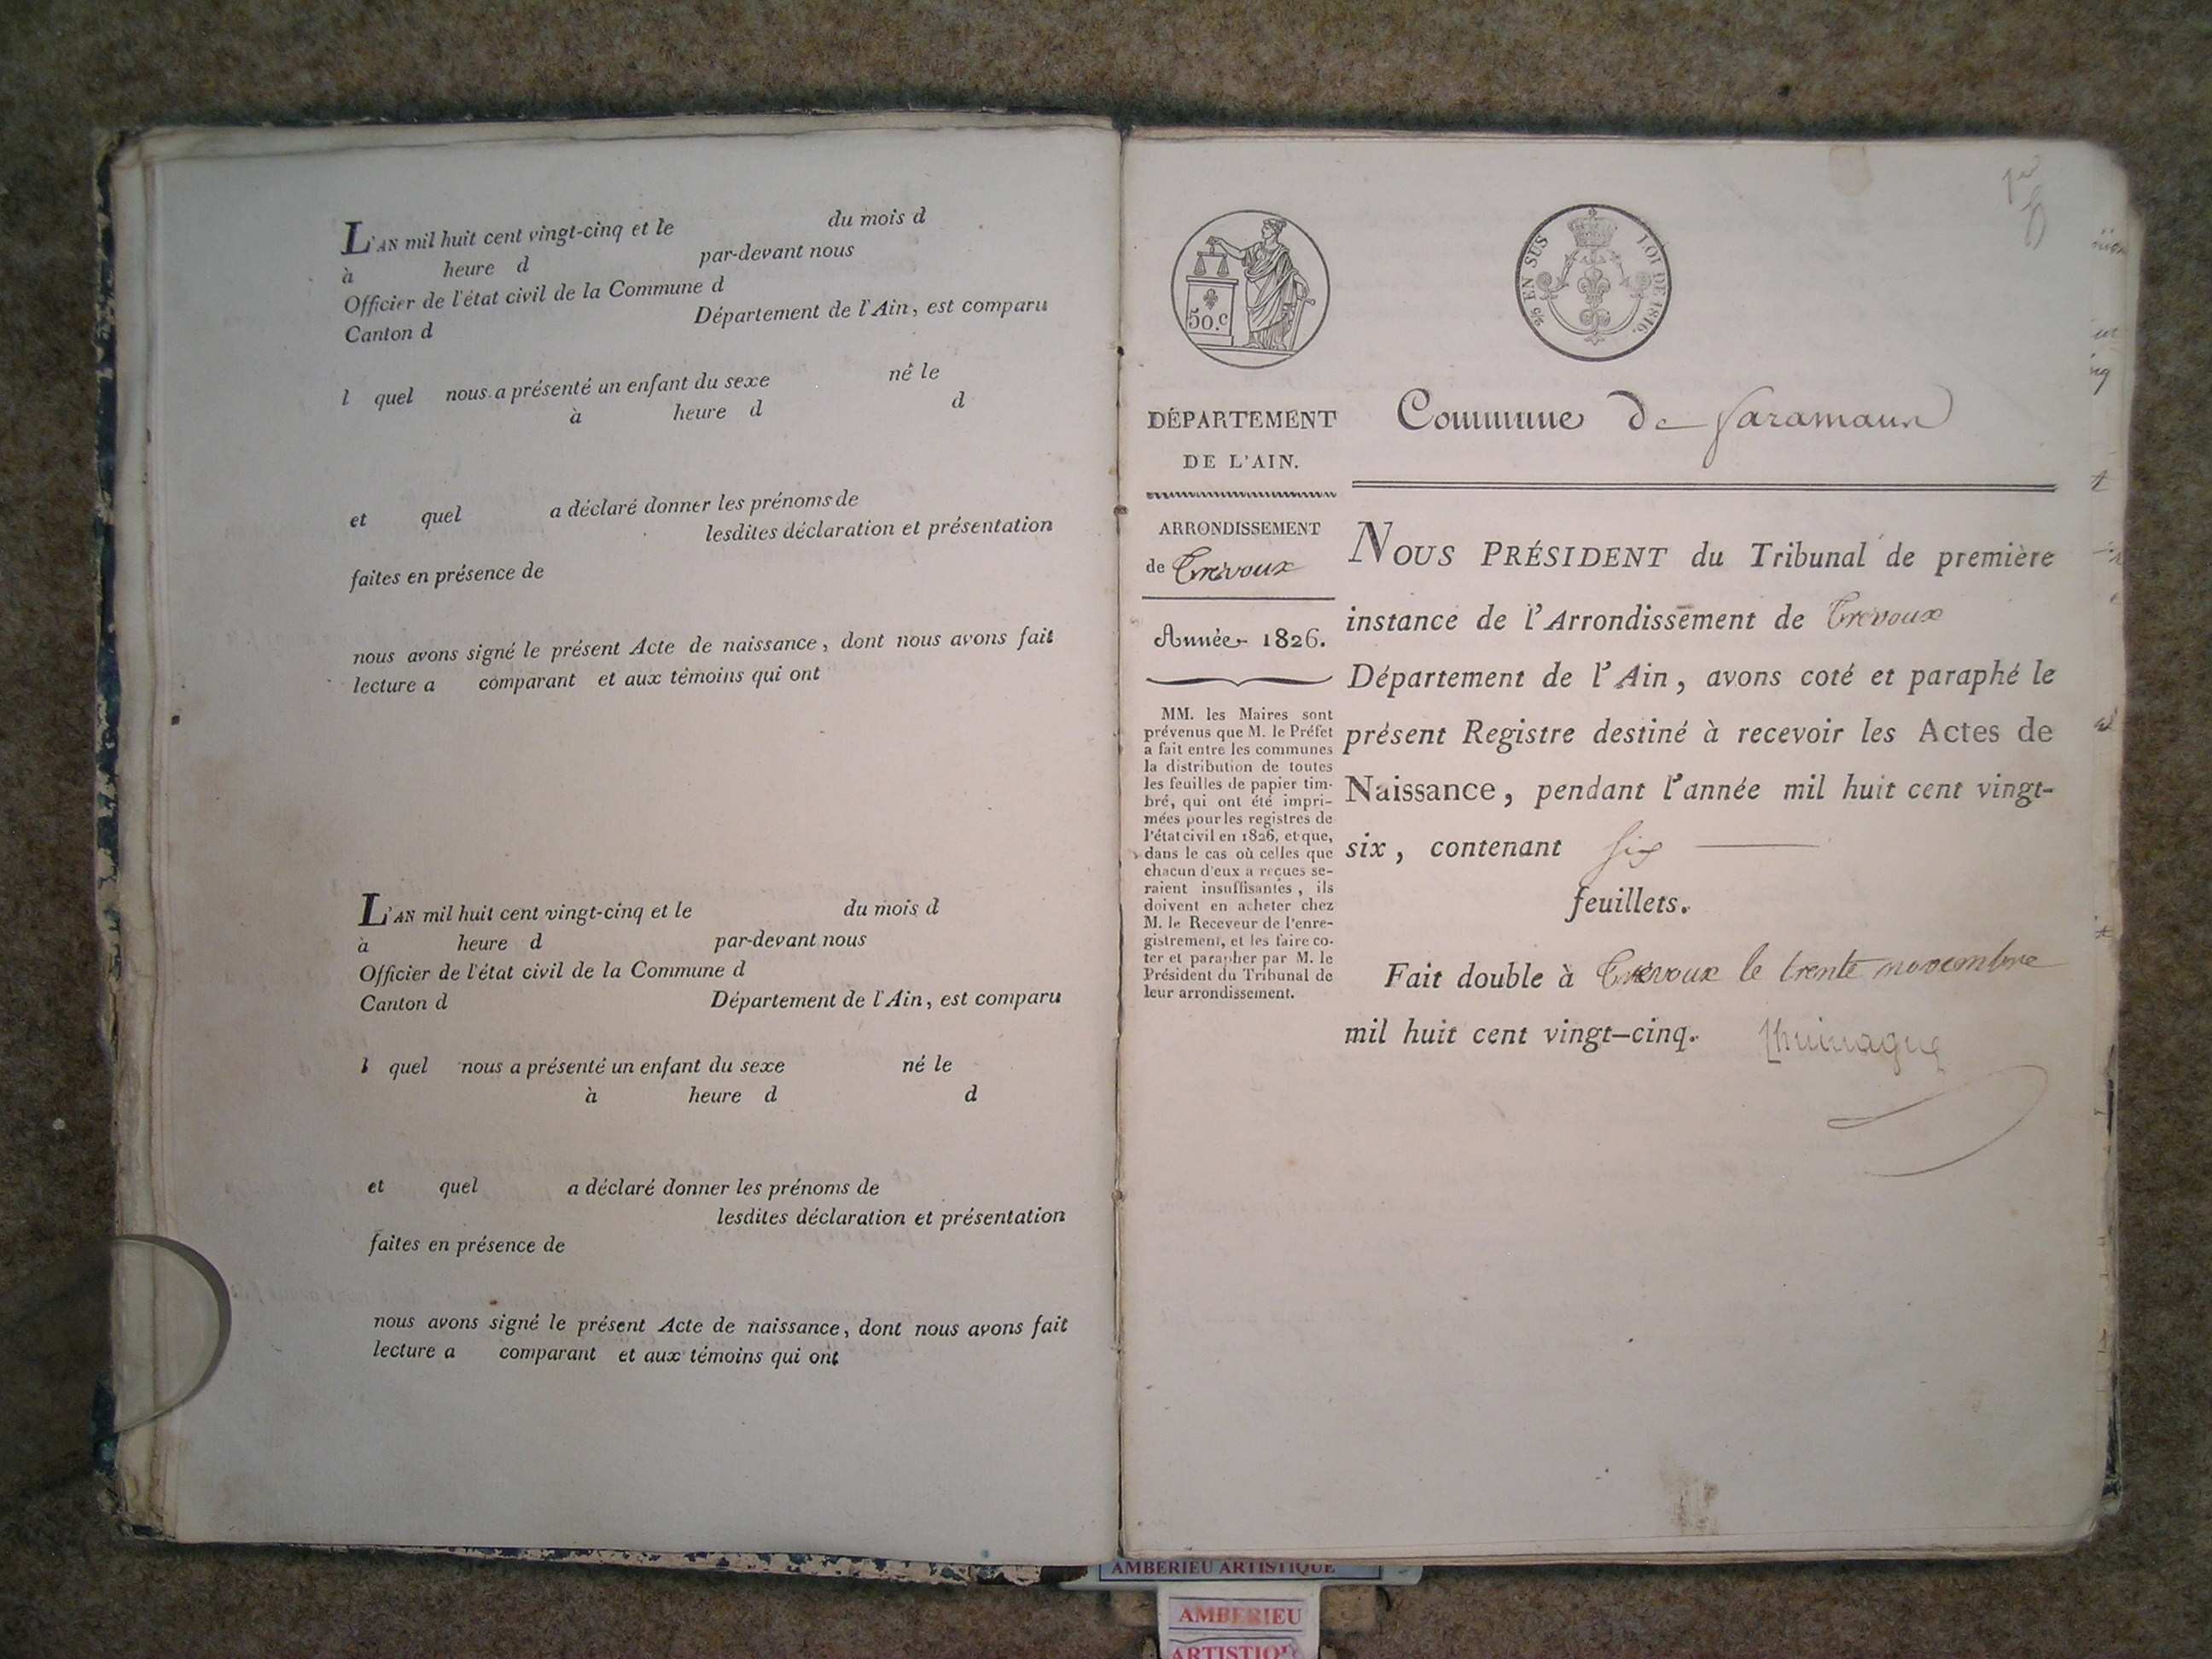 L'AN mil huit cent vingt-cinq et le du mois d
à heure d par-devant nous
Officier de l'état civil de la Commune d
Canton d Département de l'Ain, est comparu
l quel nous a présenté un enfant du sexe né le
à heure d d
et quel a déclaré donner les prénoms de
lesdites déclaration et présentation
faites en présence de
nous avons signé le présent Acte de naissance, dont nous avons fait
lecture a comparant et aux témoins qui ont
L'AN mil huit cent vingt-cinq et le du mois d
à heure d par-devant nous
Officier de l'état civil de la Commune d
Canton d Département de l'Ain, est comparu
l quel nous a présenté un enfant du sexe né le
à heure d d
et quel a déclaré donner les prénoms de
lesdites déclaration et présentation
faites en présence de
nous avons signé le présent Acte de naissance, dont nous avons fait
lecture a comparant et aux témoins qui ont
50.c
EN SUS LOI DE 1816.
DÉPARTEMENT
DE L'AIN.
ARRONDISSEMENT
de Trévoux
Année 1826.
MM. les Maires sont
prévenus que M. le Préfet
a fait entre les communes
la distribution de toutes
les feuilles de papier tim-
bré, qui ont été impri-
mées pour les registres de
l'état civil en 1826, et que,
dans le cas où celles que
chacun d'eux a reçues se-
raient insuffisantes, ils
doivent en acheter chez
M. le Receveur de l'enre-
gistrement, et les faire co-
ter et parapher par M. le
Président du Tribunal de
leur arrondissement.
Commune de Faramans
NOUS PRÉSIDENT du Tribunal de première
instance de l'Arrondissement de Trévoux
Département de l'Ain, avons coté et paraphé le
présent Registre destiné à recevoir les Actes de
Naissance, pendant l'année mil huit cent vingt-
six, contenant six
feuillets.
Fait double à Trévoux le trente novembre
mil huit cent vingt-cinq.
AMBERIEU ARTISTIQUE
AMBERIEU
ARTISTIQUE